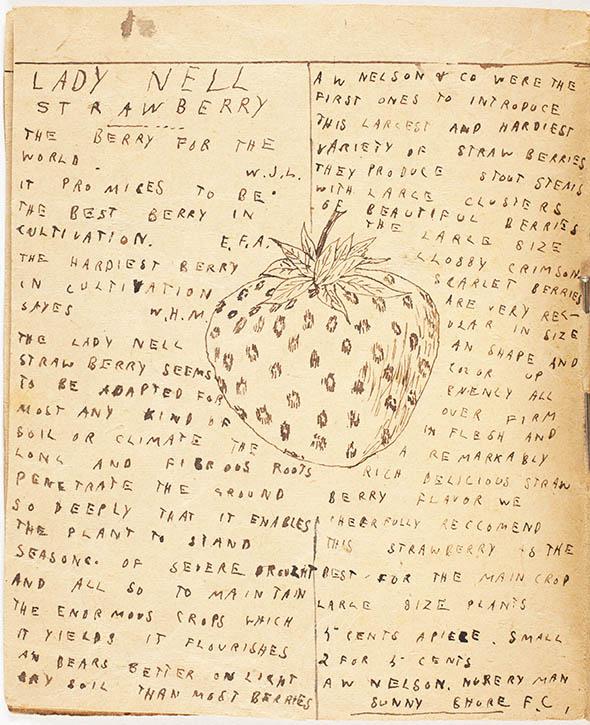 LADY NELL
STRAWBERRY
THE BERRY FOR THE
WORLD. W.J.L.
IT PROMICES TO BE
THE BEST BERRY IN
CULTIVATION. E.F.A.
THE HARDIEST BERRY
IN CULTIVATION
SAYES W.H.M.
THE LADY NELL
STRAW BERRY SEEMS
TO BE ADAPTED FOR
MOST ANY KIND OF
SOIL OR CLIMATE THE
LONG AND FIBROUS ROOTS
PENETRATE THE GROUND
SO DEEPLY THAT IT ENABLES
THE PLANT TO STAND
SEASONS. OF SEVERE DROUGHT
AND ALL SO TO MAINTAIN
THE ENORMOUS CROPS WHICH
IT YIELDS IT FLOURISHES
AN BEARS BETTER ON LIGHT
DRY SOIL THAN MOST BERRIES
A W NELSON & CO WERE THE
FIRST ONES TO INTRODUCE
THIS LARGEST AND HARDIEST
VARIETY OF STRAW BERRIES
THEY PRODUCE STOUT STEMS
WITH LARGE CLUSTERS
OF BEAUTIFUL BERRIES
THE LARGE SIZE
GLOSSY CRIMSON
SCARLET BERRIES
ARE VERY REG-
ULAR IN SIZE
AN SHAPE AND
COLOR UP
EVENLY ALL
OVER FIRM
IN FLESH AND
A REMARKABLY
RICH DELICIOUS STRAW
BERRY FLAVOR WE
CHEERFULLY RECCOMEND
THIS STRAWBERRY AS THE
BEST FOR THE MAIN CROP
LARGE SIZE PLANTS
5 CENTS APIECE. SMALL
2 FOR 5 CENTS
A W NELSON. NURERY MAN
SUNNY SHORE F.C,